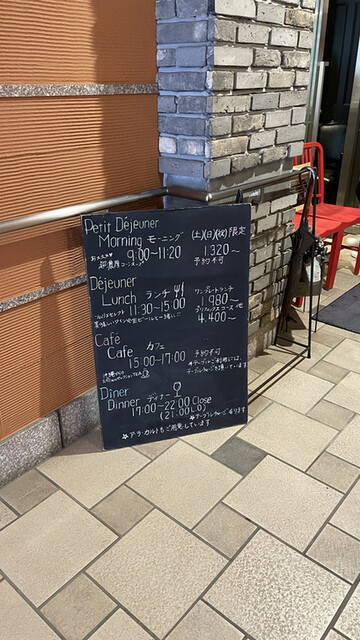 Petit Déjeuner
Morning モーニング (土)(日)(祝)限定
9:00~11:20 1,320~
予約不可
Déjeuner
Lunch ランチ ワンプレートランチ
11:30~15:00 1,980~
プリフィックスコース 他
4,400~
Café
Cafe カフェ
15:00~17:00 予約不可
Dîner
Dinner ディナー
17:00~22:00 Close
(21:00 L.O)
☆ア・ラ・カルトもご用意しています